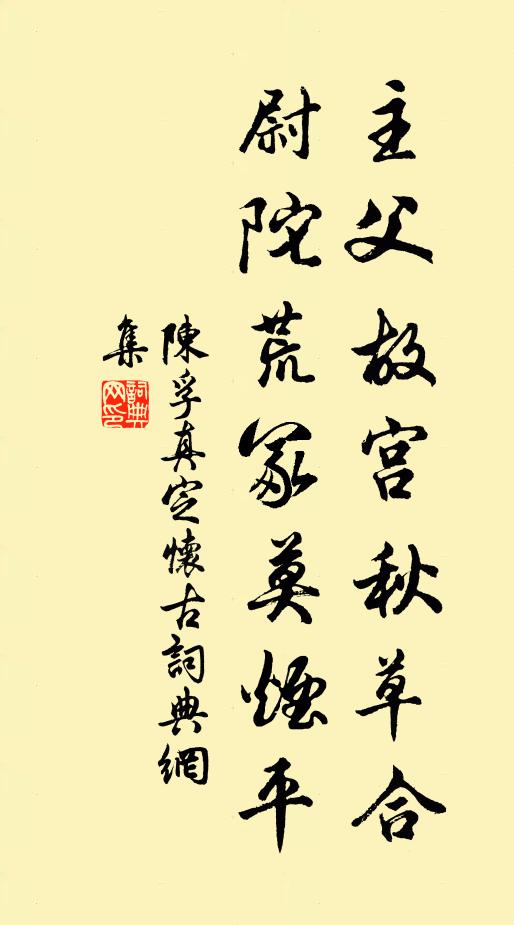 主父故宫秋草合
尉陀荒冢莫煙平
陳孚真定懷古詞典網
集
詞典网印